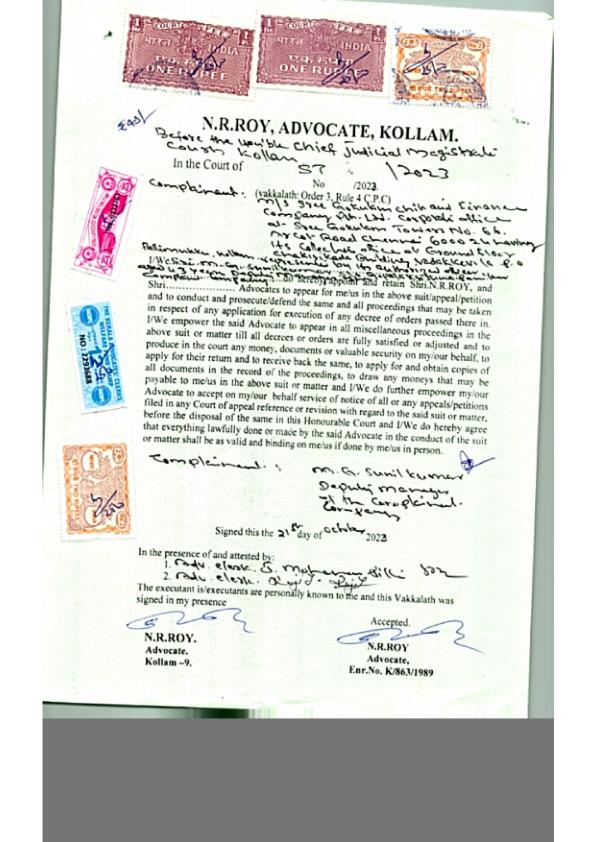 COURT FEE
भारत INDIA
एक रुपया
ONE RUPEE
COURT FEE
भारत INDIA
एक रुपया
ONE RUPEE
N.R.ROY, ADVOCATE, KOLLAM.
Before the Hon'ble Chief Judicial Magistrate
Court Kollam
In the Court of ST /2023
No /2023
Complainant : (vakkalath: Order 3, Rule 4 C.P.C)
M/s Sree Gokulam Chit and Finance
Company Pvt. Ltd. Corporate office
at Sree Gokulam Towers No. 66.
Arcot Road Chennai 600024 having
its Collection office at Ground Floor
Chakkalakada Building Vadakkevila P.O
Pallimukku, Kollam represented by its authorised officer
I/We Sri. M.G. Sunilkumar
aged 43 years Deputy Manager
Company do hereby appoint and retain Shri.N.R.ROY, and
Shri................... Advocates to appear for me/us in the above suit/appeal/petition
and to conduct and prosecute/defend the same and all proceedings that may be taken
in respect of any application for execution of any decree of orders passed there in.
I/We empower the said Advocate to appear in all miscellaneous proceedings in the
above suit or matter till all decrees or orders are fully satisfied or adjusted and to
produce in the court any money, documents or valuable security on my/our behalf, to
apply for their return and to receive back the same, to apply for and obtain copies of
all documents in the record of the proceedings, to draw any moneys that may be
payable to me/us in the above suit or matter and I/We do further empower my/our
Advocate to accept on my/our behalf service of notice of all or any appeals/petitions
filed in any Court of appeal reference or revision with regard to the said suit or matter,
before the disposal of the same in this Honourable Court and I/We do hereby agree
that everything lawfully done or made by the said Advocate in the conduct of the suit
or matter shall be as valid and binding on me/us if done by me/us in person.
THE KERALA ADVOCATE CLERKS
WELFARE
NO: 2293688
Complainant : M. G. Sunilkumar
Deputy Manager
of the Complainant
Company
Signed this the 21st day of October 2023
In the presence of and attested by:
1. Adv. clerk. S. Mohanan Pillai
2. Adv. clerk.
The executant is/executants are personally known to me and this Vakkalath was
signed in my presence
N.R.ROY.
Advocate.
Kollam –9.
Accepted.
N.R.ROY
Advocate,
Enr.No. K/863/1989